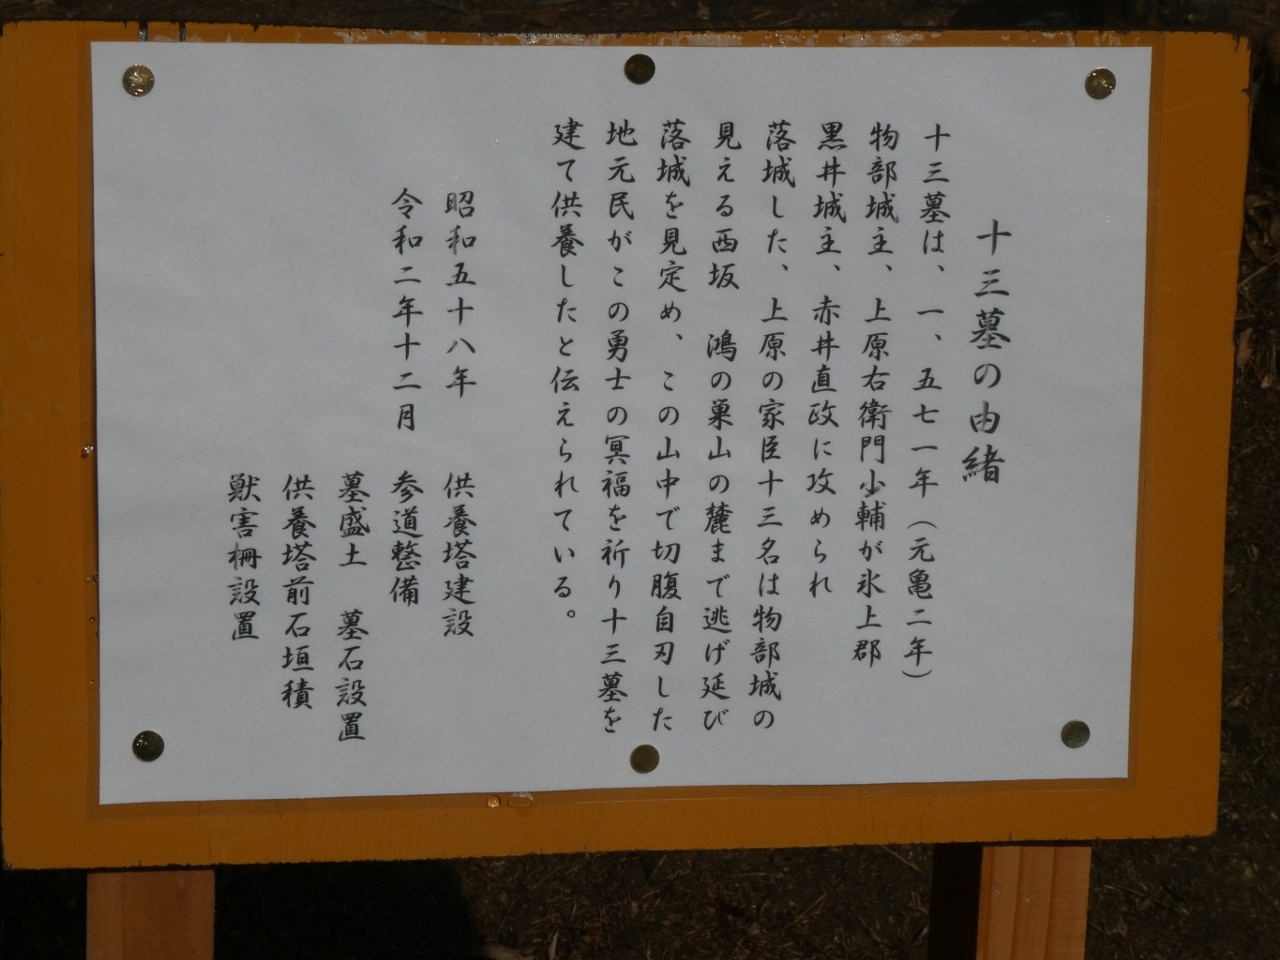 十三墓の由緒
十三墓は、一、五七一年（元亀二年）
物部城主、上原右衛門少輔が氷上郡
黒井城主、赤井直政に攻められ
落城した、上原の家臣十三名は物部城の
見える西坂　鴻の巣山の麓まで逃げ延び
落城を見定め、この山中で切腹自刃した
地元民がこの勇士の冥福を祈り十三墓を
建て供養したと伝えられている。
昭和五十八年　供養塔建設
令和二年十二月　参道整備
墓盛土　墓石設置
供養塔前石垣積
獣害柵設置